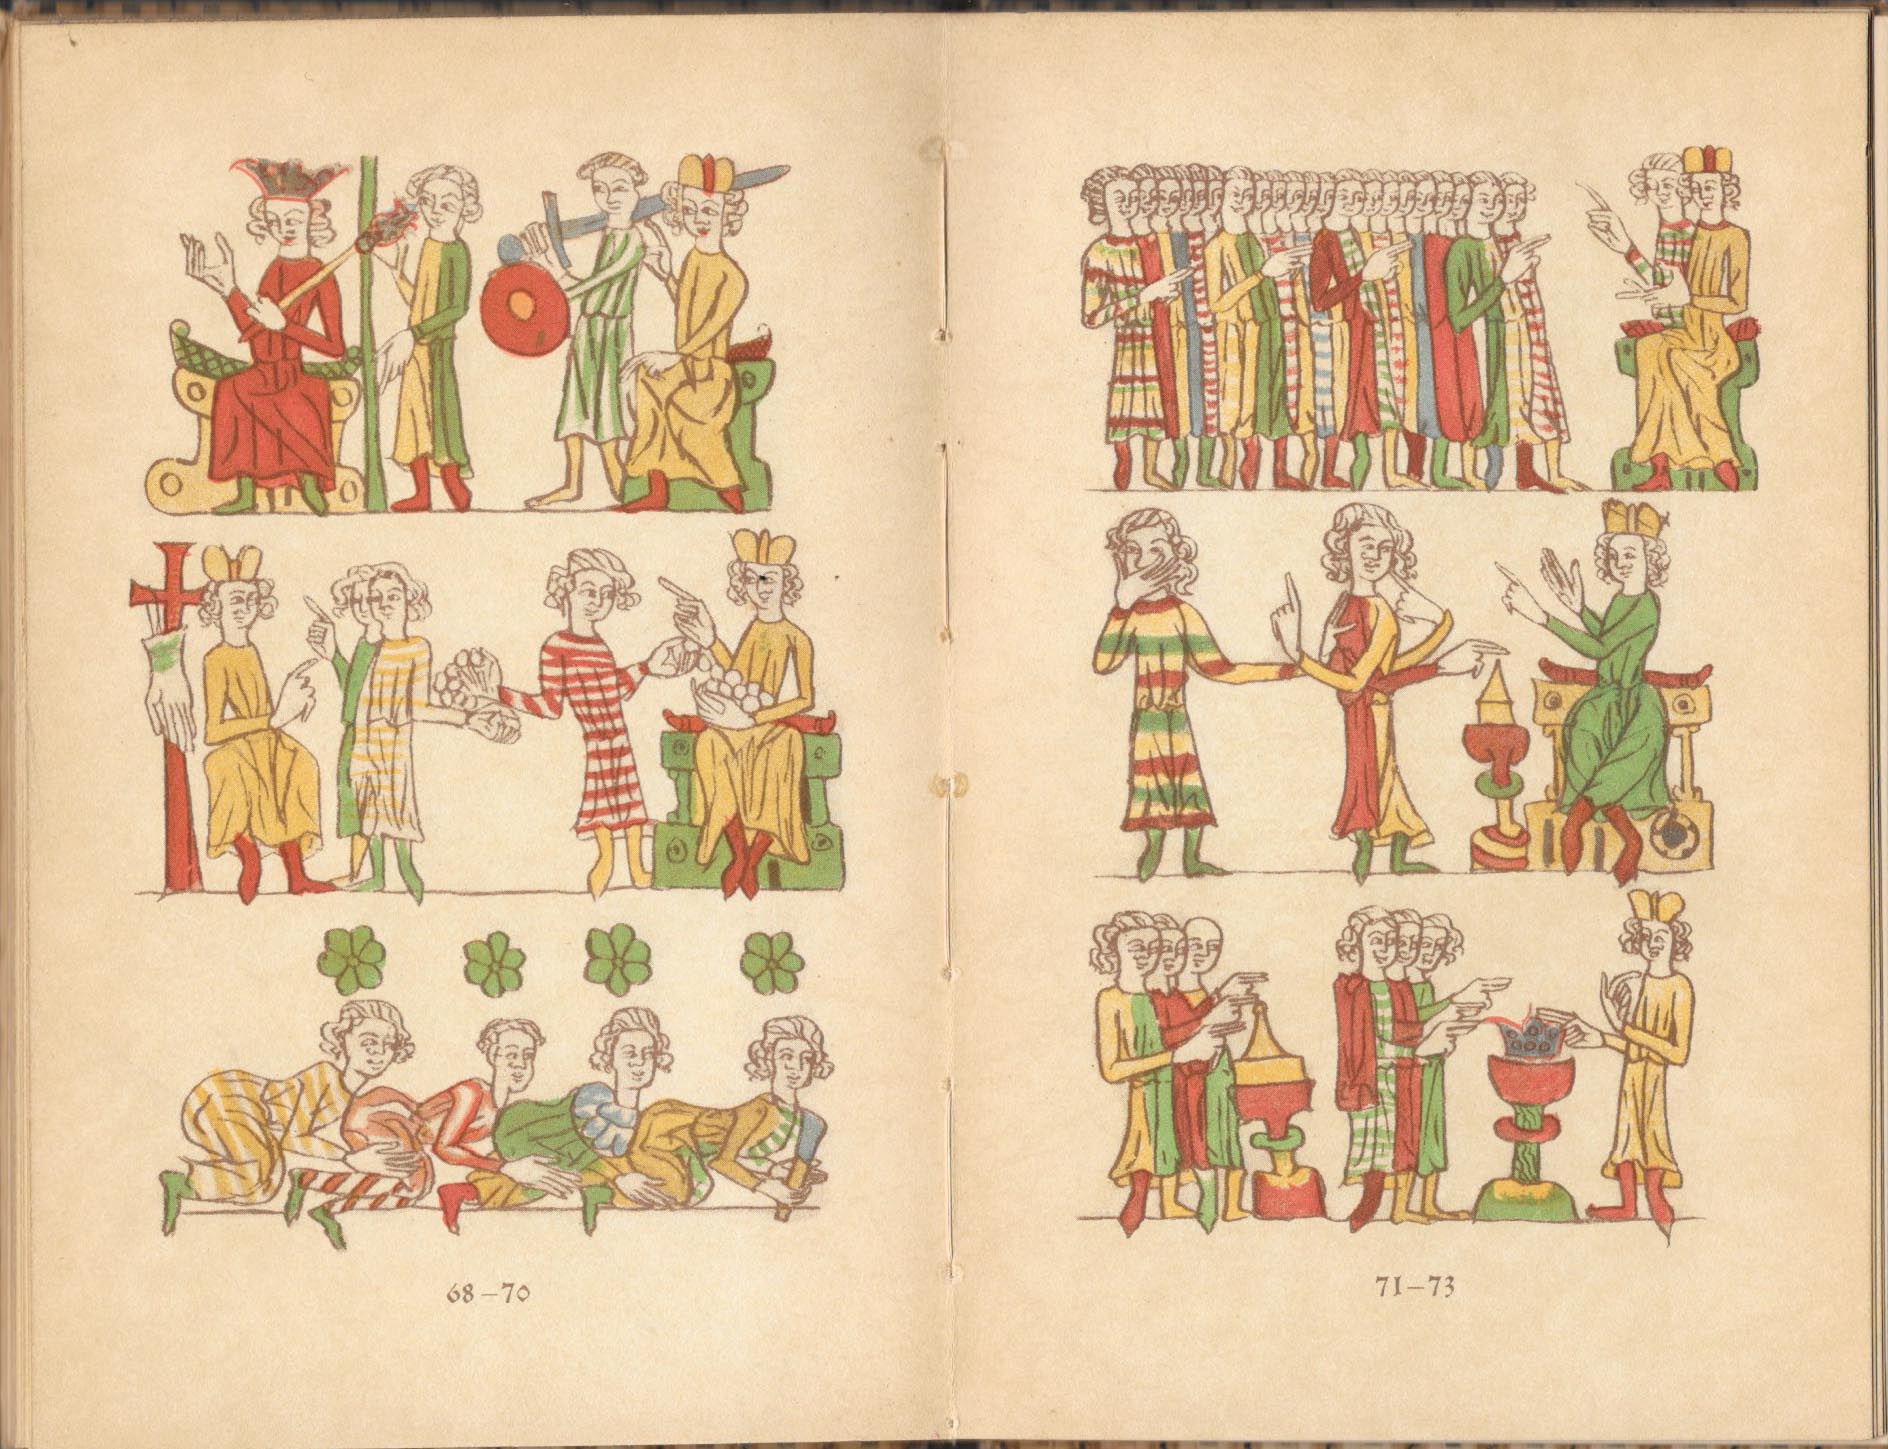 68–70
71–73